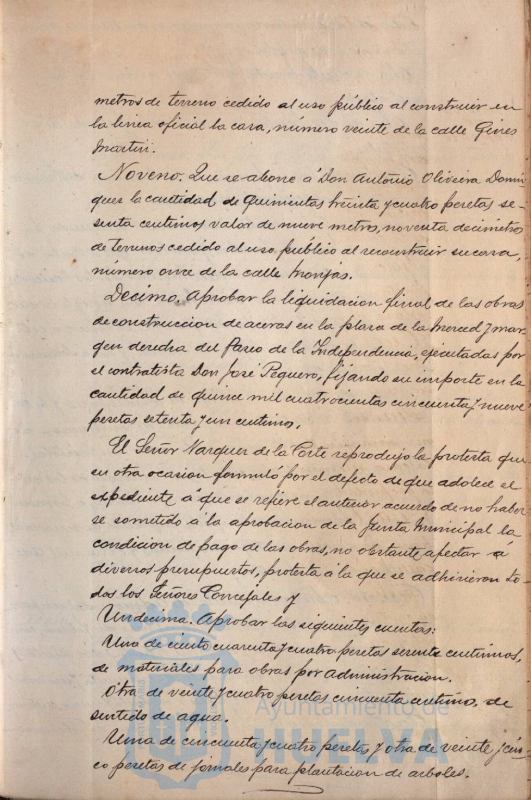 metros de terreno cedido al uso público al construir en
la linea oficial la casa, número veinte de la calle Gines
Martin.
Noveno. Que se abone á Don Antonio Oliveira Domin
guez la cantidad de Quinientas treinta y cuatro pesetas se-
senta centimos valor de nueve metros, noventa decimetros
de terrenos cedido al uso público al reconstruir su casa,
número once de la calle Monjas.
Decimo. Aprobar la liquidacion final de las obras
de construccion de aceras en la plaza de la Merced y mar-
gen derecha del Paseo de la Independencia, ejecutadas por
el contratista Don José Peguero, fijando su importe en la
cantidad de quince mil cuatrocientas cincuenta y nueve
pesetas setenta y un centimo.
El Señor Marquez de la Corte reprodujo la protesta que
en otra ocasion formuló por el defecto de que adolece el
expediente á que se refiere el anterior acuerdo de no haber
se sometido á la aprobacion de la Junta Municipal la
condicion de pago de las obras, no obstante afectar á
diversos presupuestos, protesta á la que se adhirieron to-
dos los Señores Concejales y
Undecima. Aprobar las siguientes cuentas:
Una de ciento cuarenta y cuatro pesetas centimos,
de materiales para obras por administracion.
Otra de veinte y cuatro pesetas cincuenta centimos, de
surtido de agua.
Una de cincuenta y cuatro pesetas y otra de veinte y cin
co pesetas de jornales para plantacion de arboles.
Ayuntamiento de
HUELVA